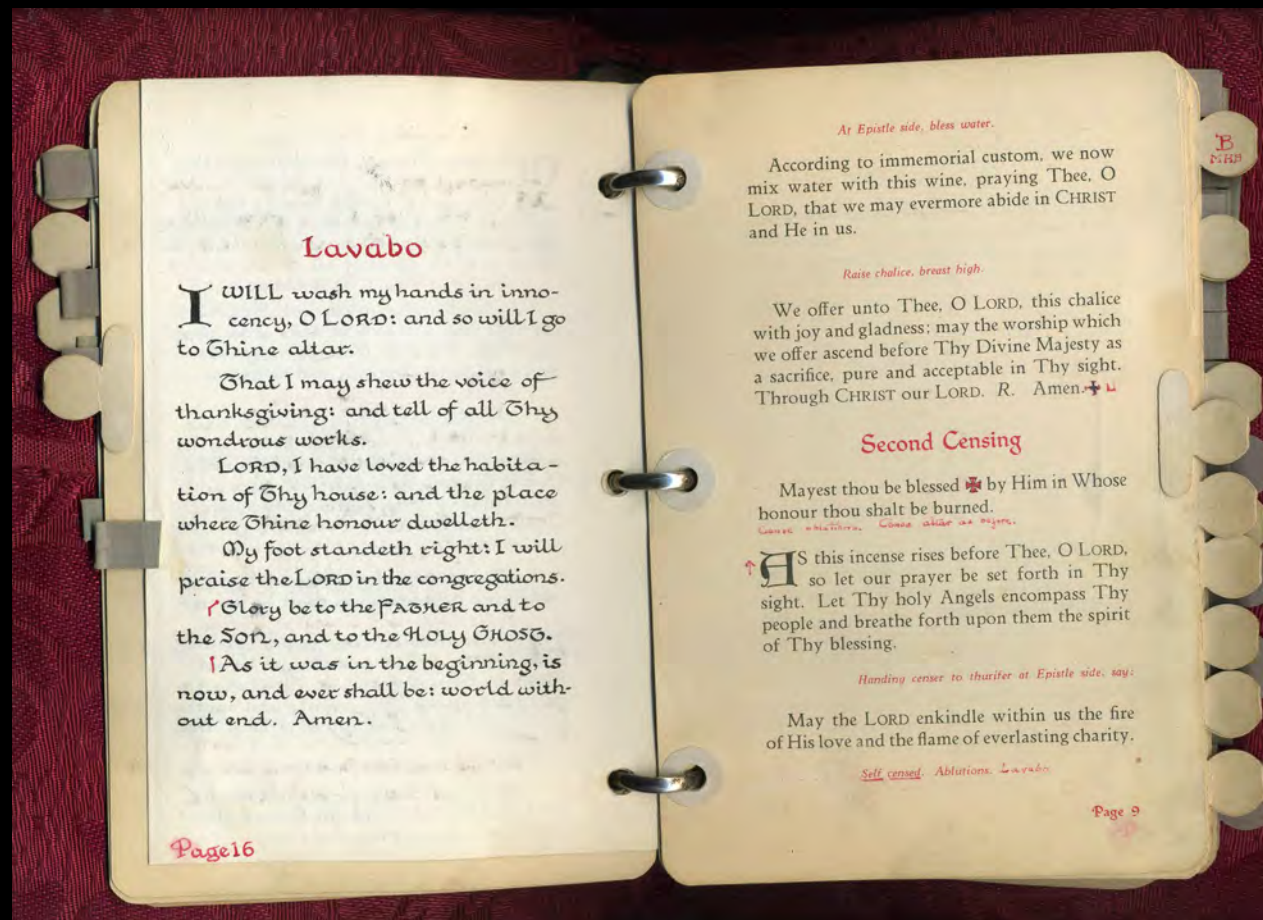 Lavabo
I WILL wash my hands in inno-
cency, O LORD: and so will I go
to Thine altar.
That I may shew the voice of
thanksgiving: and tell of all Thy
wondrous works.
LORD, I have loved the habita-
tion of Thy house: and the place
where Thine honour dwelleth.
My foot standeth right: I will
praise the LORD in the congregations.
Glory be to the FATHER and to
the SON, and to the HOLY GHOST.
As it was in the beginning, is
now, and ever shall be: world with-
out end. Amen.
Page 16
At Epistle side, bless water.
According to immemorial custom, we now
mix water with this wine, praying Thee, O
LORD, that we may evermore abide in CHRIST
and He in us.
Raise chalice, breast high.
We offer unto Thee, O LORD, this chalice
with joy and gladness; may the worship which
we offer ascend before Thy Divine Majesty as
a sacrifice, pure and acceptable in Thy sight.
Through CHRIST our LORD. R. Amen. ✠
Second Censing
Mayest thou be blessed ✠ by Him in Whose
honour thou shalt be burned.
Cense oblations. Cense altar as before.
AS this incense rises before Thee, O LORD,
so let our prayer be set forth in Thy
sight. Let Thy holy Angels encompass Thy
people and breathe forth upon them the spirit
of Thy blessing.
Handing censer to thurifer at Epistle side, say:
May the LORD enkindle within us the fire
of His love and the flame of everlasting charity.
Self censed. Ablutions. Lavabo
Page 9
B